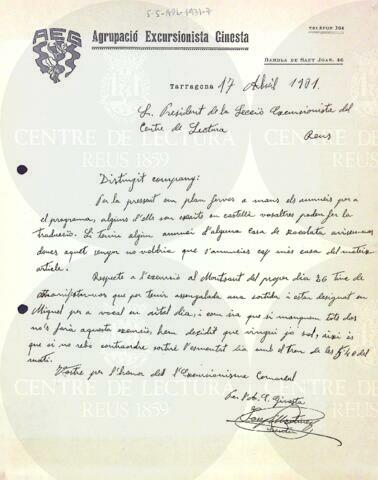 5-5-APL-1931-7
AEG
Agrupació Excursionista Ginesta
TELÈFON 364
RAMBLA DE SANT JOAN, 46
Tarragona 17 Abril 1931.
Sr. President de la Secció Excursionista del
Centre de Lectura
Reus
Distingit company:
Per la present em plau fer-vos a mans els anuncis per a
el programa, alguns d'ells son escrits en castellà vosaltres podeu fer la
traducció. Si teniu algun anunci d'alguna casa de xocolata aviseu-nos
doncs aquet senyor no voldria que s'anunciés cap més casa del mateix
article.
Respecte a l'excursió al Montsant del proper dia 26 tinc de
que per tenir assenyalada una sortida i estar designat en
Miquel per a vocal en aital dia, i com sia que si manquem tots dos
no's faria aquesta excursió, hem decidit que vingui jo sol, així és
que si no rebo contraordre sortiré l'esmentat dia amb el tren de les 5'40 del
matí.
Vostre per l'honor del l'Excursionisme Comarcal
Per l'A. E. Ginesta
CENTRE DE LECTURA
REUS 1859
CENTRE DE LECTURA
REUS 1859